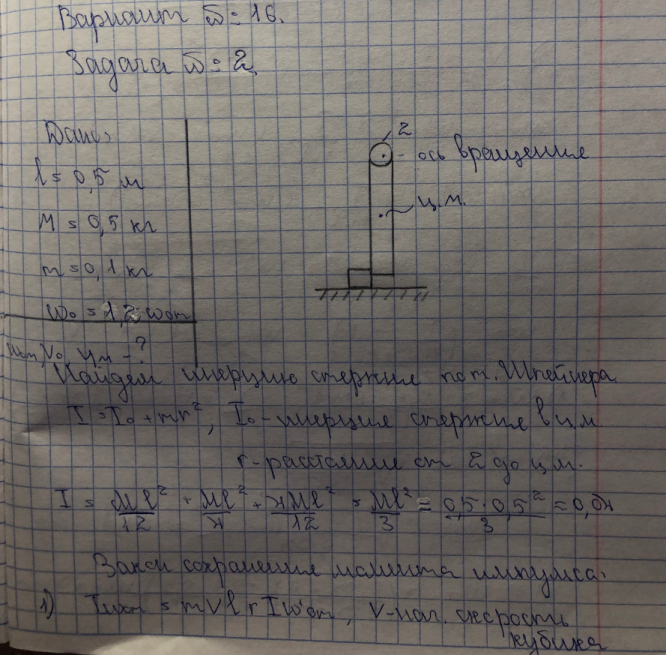 Вариант № = 16.
Задача № = 2.
Дано:
l = 0,5 м
M = 0,5 кг
m = 0,1 кг
ω₀ = 1,2 ωоп
V₀, Um - ?
z
- ось вращения
ц.м.
Найдем инерцию стержня по т. Штейнера
I = I₀ + mr², I₀ - инерция стержня в ц.м.
r - расстояние от z до ц.м.
I = Ml²/12 + Ml²/4 = Ml²/3 = 0,5·0,5²/3 = 0,04
Закон сохранения момента импульса:
1) = mVl + Iω, V - нач. скорость
кубика